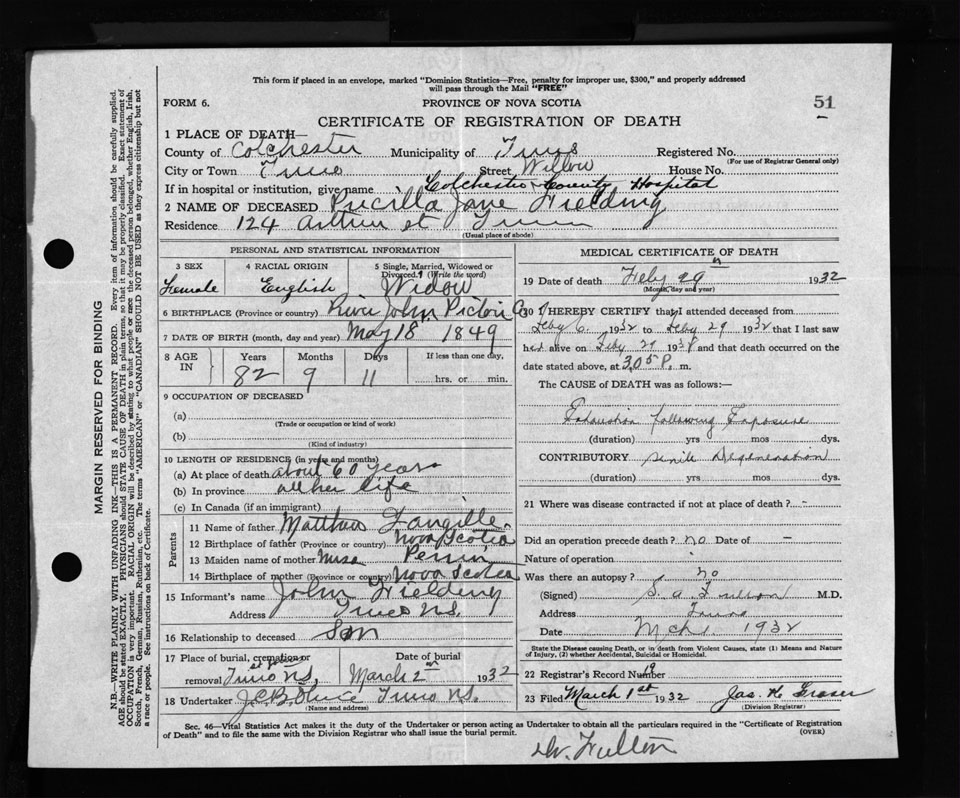 This form if placed in an envelope, marked "Dominion Statistics—Free, penalty for improper use, $300," and properly addressed
will pass through the Mail "FREE"
FORM 6.
PROVINCE OF NOVA SCOTIA
51
CERTIFICATE OF REGISTRATION OF DEATH
1 PLACE OF DEATH—
County of Colchester Municipality of Truro Registered No.
(For use of Registrar General only)
City or Town Truro Street Willow House No.
If in hospital or institution, give name Colchester County Hospital
2 NAME OF DECEASED Pricilla Jane Fielding
Residence 124 Arthur st Truro
(Usual place of abode)
PERSONAL AND STATISTICAL INFORMATION
3 SEX 4 RACIAL ORIGIN 5 Single, Married, Widowed or Divorced? (Write the word)
Female English Widow
6 BIRTHPLACE (Province or country) River John Pictou Co
7 DATE OF BIRTH (month, day and year) May 18, 1849
8 AGE IN Years Months Days If less than one day,
82 9 11 hrs. or min.
9 OCCUPATION OF DECEASED
(a)
(Trade or occupation or kind of work)
(b)
(Kind of industry)
10 LENGTH OF RESIDENCE (in years and months)
(a) At place of death about 60 years
(b) In province all her life
(c) In Canada (if an immigrant)
Parents
11 Name of father Matthew Langille
12 Birthplace of father (Province or country) Nova Scotia
13 Maiden name of mother Perrin
14 Birthplace of mother (Province or country) Nova Scotia
15 Informant's name John Fielding
Address Truro N.S.
16 Relationship to deceased Son
17 Place of burial, cremation or removal Truro N.S. Date of burial March 2 1932
18 Undertaker Truro N.S.
(Name and address)
MEDICAL CERTIFICATE OF DEATH
19 Date of death Feby 29 1932
(Month, day and year)
20 I HEREBY CERTIFY that I attended deceased from
Feby 6 1932 to Feby 29 1932 that I last saw
her alive on Feby 29 193 and that death occurred on the
date stated above, at 3.05 P. m.
The CAUSE of DEATH was as follows:—
Exhaustion following Exposure
(duration) yrs mos dys.
CONTRIBUTORY Senile Degeneration
(duration) yrs mos dys.
21 Where was disease contracted if not at place of death? -
Did an operation precede death? no Date of -
Nature of operation
Was there an autopsy? no
(Signed) S. A. Fulton M.D.
Address Truro
Date Mch 1. 1932
State the Disease causing Death, or in death from Violent Causes, state (1) Means and
Nature of Injury, (2) whether Accidental, Suicidal or Homicidal.
22 Registrar's Record Number 19
23 Filed March 1st 1932 Jas. H. Fraser
(Division Registrar)
Sec. 46—Vital Statistics Act makes it the duty of the Undertaker or person acting as Undertaker to obtain all the particulars required in the "Certificate of Registration
of Death" and to file the same with the Division Registrar who shall issue the burial permit.
(OVER)
Dr. Fulton
MARGIN RESERVED FOR BINDING
N.B.—WRITE PLAINLY WITH UNFADING INK—THIS IS A PERMANENT RECORD. Every item of information should be carefully supplied.
AGE should be stated EXACTLY. PHYSICIANS should STATE CAUSE OF DEATH in plain terms, so that it may be properly classified. Exact statement of
OCCUPATION is very important. RACIAL ORIGIN will be described by stating to what people or race the deceased person belonged, whether English, Irish,
Scotch, French, German, Russian, Ruthenian, etc. The terms "AMERICAN" or "CANADIAN" SHOULD NOT BE USED as they express citizenship but not
a race or people. See instructions on back of Certificate.